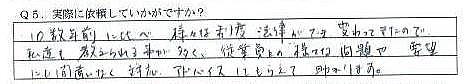 Q5. 実際に依頼していかがですか？
10数年前に比べ 様々な制度 法律ができ 変わってきたので、
私達も 教えられる事が多く、従業員との 様々な問題や 要望
にも間違いなく 対応、アドバイスしてもらえて 助かります。